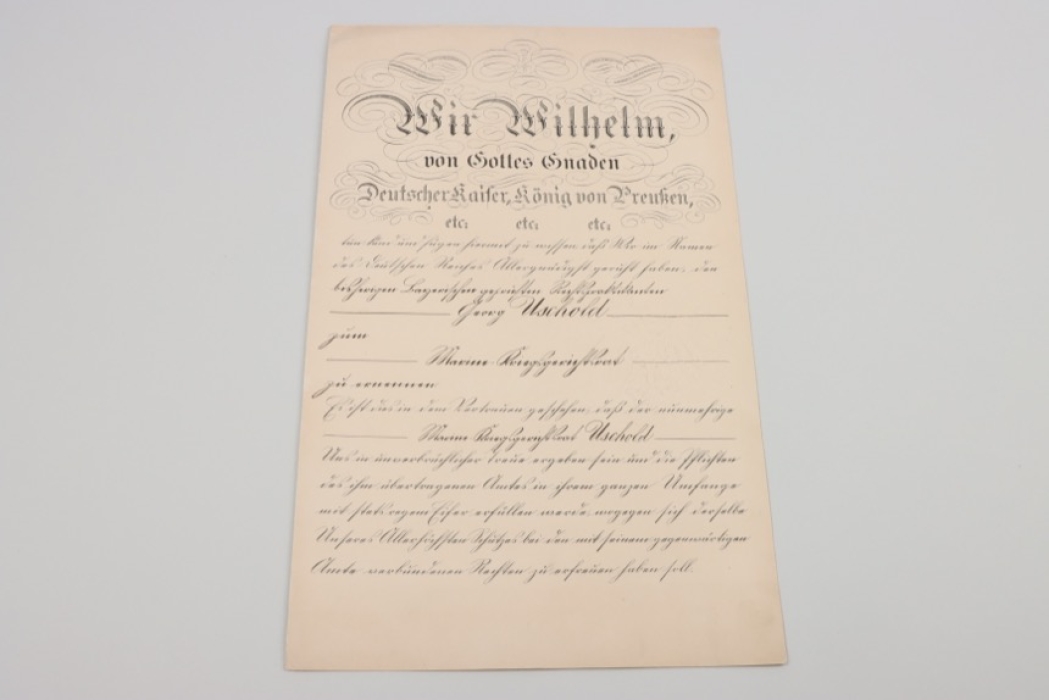 Wir Wilhelm,
von Gottes Gnaden
Deutscher Kaiser, König von Preußen,
etc. etc. etc.
tun kund und fügen hiermit zu wissen, daß Wir im Namen
des Deutschen Reiches Allergnädigst geruht haben, den
bisherigen Bayerischen geprüften Rechtspraktikanten
Georg Uschold
zum
Marine-Kriegsgerichtsrat
zu ernennen
Es ist das in dem Vertrauen geschehen, daß der nunmehrige
Marine-Kriegsgerichtsrat Uschold
Uns in unverbrüchlicher Treue ergeben sein und die Pflichten
des ihm übertragenen Amtes in ihrem ganzen Umfange
mit stets regem Eifer erfüllen werde, wogegen sich derselbe
Unseres Allerhöchsten Schutzes bei den mit seinem gegenwärtigen
Amte verbundenen Rechten zu erfreuen haben soll.